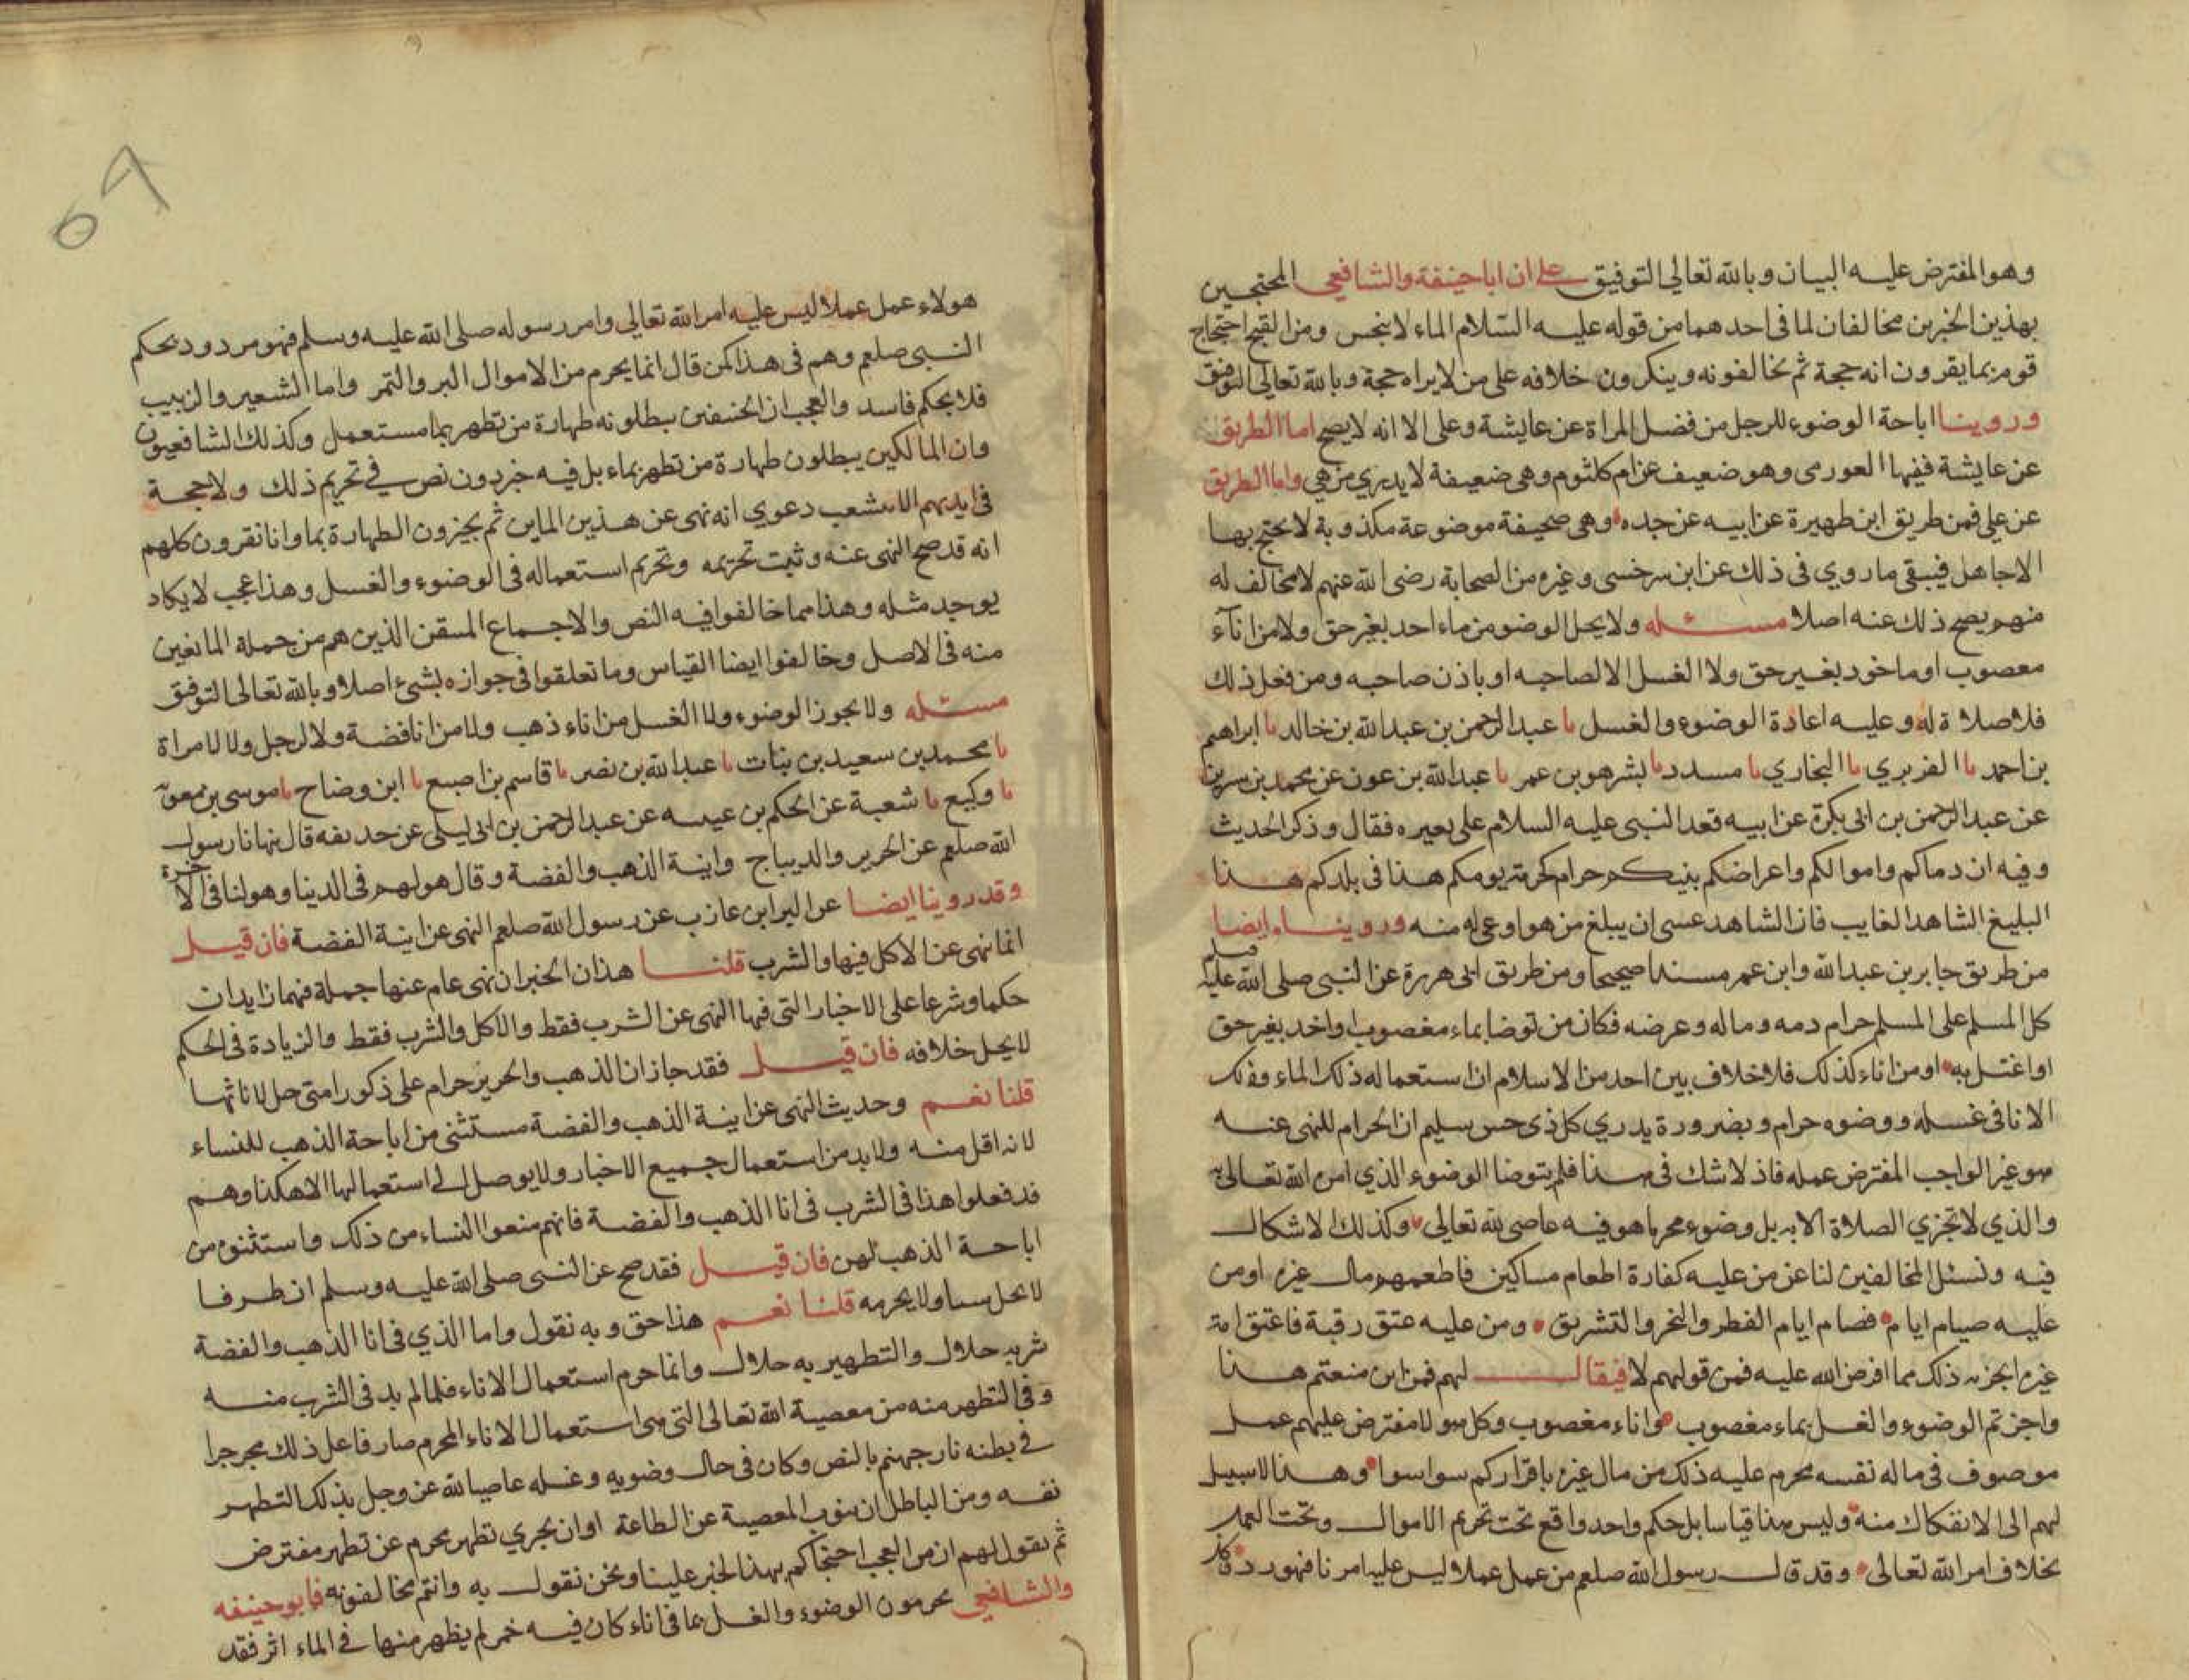 وهو المفترض عليه البيان وبالله تعالى التوفيق على ان ابا حنيفة والشافعي المحتجين
بهذين الخبرين مخالفان لما في احدهما من قوله عليه السلام الماء لا ينجس ومن القبيح احتجاج
قوم بما يقرون انه حجة ثم يخالفونه وينكرون خلافه على من لا يراه حجة وبالله تعالى التوفيق
وروينا اباحة الوضوء للرجل من فضل المراة عن عايشة وعلى الا انه لا يصح اما الطريق
عن عايشة ففيها العورمي وهو ضعيف عن ام كلثوم وهي ضعيفة لا يدري من هي واما الطريق
عن علي فمن طريق ابن طهيرة عن ابيه عن جده وهي صحيفة موضوعة مكذوبة لا يحتج بها
الا جاهل فيبقى ما روي في ذلك عن ابن سرخسى وغيره من الصحابة رضى الله عنهم لا مخالف له
منهم يصح ذلك عنه اصلا مسئله ولا يحل الوضو من ماء احد بغير حق ولا من اناء
معصوب او ماخود بغير حق ولا الغسل الا لصاحبه او باذن صاحبه ومن فعل ذلك
فلا صلاة له وعليه اعادة الوضوء والغسل نا عبد الرحمن بن عبد الله بن خالد نا ابراهيم
بن احمد نا الفربري نا البخاري نا مسدد نا بشر هو بن عمر نا عبد الله بن عون عن محمد بن سرين
عن عبد الرحمن بن ابي بكرة عن ابيه قعد النبي عليه السلام على بعيره فقال وذكر الحديث
وفيه ان دماكم واموالكم واعراضكم بينكم حرام كحرمة يومكم هذا في بلدكم هذا
البليغ الشاهد الغايب فان الشاهد عسى ان يبلغ من هو اوعى له منه وروينا ايضا
من طريق جابر بن عبد الله وابن عمر مسندا صحيحا ومن طريق ابي هريرة عن النبي صلى الله عليه وسلم
كل المسلم على المسلم حرام دمه وماله وعرضه فكان من توضا بماء مغصوب او اخد بغير حق
او اغتسل به او من اناء كذلك فلا خلاف بين احد من الاسلام ان استعماله ذلك الماء وذلك
الانا في غسله ووضوه حرام وبضرورة يدري كل ذي حس سليم ان الحرام للنهي عنه
هو غير الواجب المفترض عمله فاذ لا شك في هذا فلم يتوضا الوضوء الذي امره الله تعالى به
والذي لا تجزي الصلاة الا به بل وضوء محرما هو فيه عاصى لله تعالى وكذلك لا شكال
فيه ونسئل المخالفين لنا عن من عليه كفارة اطعام مساكين فاطعمهم مال غيره او من
عليه صيام ايام فصام ايام الفطر والنحر والتشريق ومن عليه عتق رقبة فاعتق امة
غيره ايجزيه ذلك مما افرض الله عليه فمن قولهم لا فيقال لهم فمن اين منعتم هذا
واجزتم الوضوء والغسل بماء مغصوب واناء مغصوب وكل هولا مفترض عليهم عمل
موصوف في ماله نفسه محرم عليه ذلك من مال غيره باقراركم سوا سوا وهذا لا سبيل
لهم الى الانفكاك منه وليس هذا قياسا بل حكم واحد واقع تحت تحريم الاموال وتحت العمد
بخلاف امر الله تعالى وقد قال رسول الله صلعم من عمل عملا ليس عليه امرنا فهو رد
هولاء عمل عملا ليس عليه امر الله تعالى وامر رسوله صلى الله عليه وسلم فهو مردود بحكم
النبي صلعم وهم في هذا كمن قال انما يحرم من الاموال البر والتمر واما الشعير والزبيب
فلا بحكم فاسد والعجب ان الحنيفين يبطلونه طهارة من تطهر بما مستعمل وكذلك الشافعيون
وان المالكين يبطلون طهارة من تطهر بماء بل فيه خبز دون نص في تحريم ذلك ولا حجة
في ايديهم الا تشعب دعوي انه نهى عن هذين الماين ثم يجيزون الطهارة بما وانا نقرون كلهم
انه قد صح النهى عنه وثبت تحريمه وتحريم استعماله في الوضوء والغسل وهذا عجب لا يكاد
يوجد مثله وهذا مما خالفوا فيه النص والاجماع المسقن الذين هم من جملة المانعين
منه في الاصل وخالفوا ايضا القياس وما تعلقوا في جوازه بشيء اصلا وبالله تعالى التوفيق
مسئله ولا يجوز الوضوء ولا الغسل من اناء ذهب ولا من انا فضة ولا لرجل ولا لامراة
نا محمد بن سعيد بن نبات نا عبد الله بن نصر نا قاسم بن اصبع نا ابن وضاح نا موسى بن معوية
نا وكيع نا شعبة عن الحكم بن عيسه عن عبد الرحمن بن ابي ليلى عن حديفه قال نهانا رسول
الله صلعم عن الحرير والديباج وانية الذهب والفضة وقال هو لهم في الدينا وهو لنا في الاخرة
وقد روينا ايضا عن البرا بن عازب عن رسول الله صلعم النهى عن انية الفضة فان قيل
انما نهى عن الاكل فيها والشرب قلنا هذان الخبران نهى عام عنها جملة فهما زايدان
حكما وشرعا على الاخبار التي فيها النهى عن الشرب فقط والاكل والشرب فقط والزيادة في الحكم
لا يحل خلافه فان قيل فقد جاز ان الذهب والحرير حرام على ذكور امتى حل لاناثها
قلنا نعم وحديث النهى عن انية الذهب والفضة مستثنى من اباحة الذهب للنساء
لانه اقل منه ولا بد من استعمال جميع الاخبار ولا يوصل الى استعمالها الا هكذا وهم
قد فعلوا هذا في الشرب في انا الذهب والفضة فانهم منعوا النساء من ذلك واستثنوه من
اباحة الذهب لهن فان قيل فقد صح عن النبي صلى الله عليه وسلم ان ظرفا
لا يحل سيا ولا يحرمه قلنا نعم هذا حق وبه نقول واما الذي في انا الذهب والفضة
شربه حلال والتطهير به حلال وانما حرم استعمال الاناء فلما لم بد في الشرب منه
وفي التطهر منه من معصية الله تعالى التي هي استعمال الاناء المحرم صار فاعل ذلك مجرجرا
في بطنه نار جهنم بالنص وكان في حال وضويه وغسله عاصيا لله عز وجل بذلك التطهر
نفسه ومن الباطل ان ينوب المعصية عن الطاعة او ان يجري تطهر محرم عن تطهر مفترض
ثم نقول لهم ان من العجب احتجاكم بهذا الخبر علينا ونحن نقول به وانتم مخالفونه فابو حنيفه
والشافعي يحرمون الوضوء والغسل بما في اناء كان فيه خمر لم يظهر منها في الماء اثر فقد